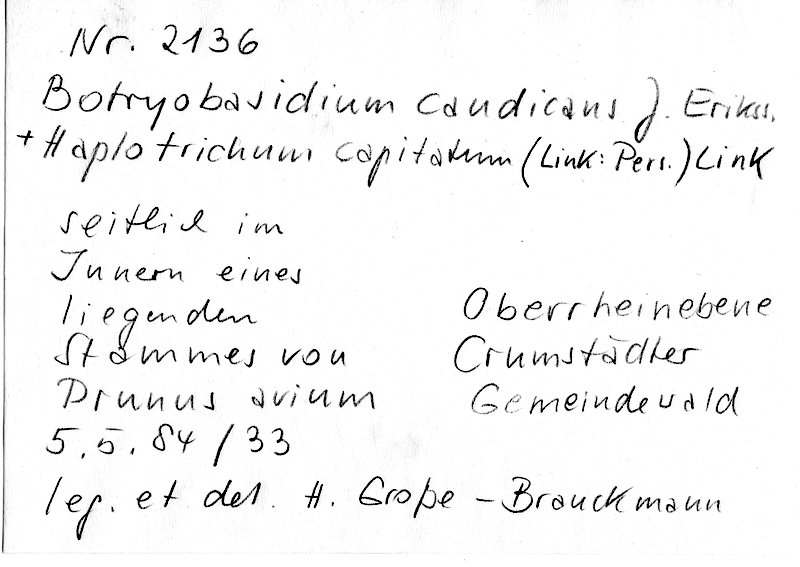 Nr. 2136
Botryobasidium candicans J. Erikss.
+ Haplotrichum capitatum (Link: Pers.) Link
seitlich im
Innern eines
liegenden
Stammes von
Prunus avium
5.5.84/33
Oberrheinebene
Crumstädter
Gemeindewald
leg. et det. H. Große-Brauckmann